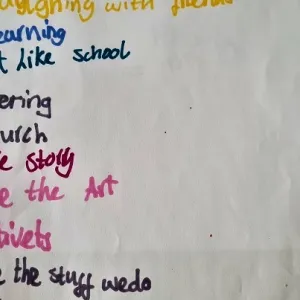 laughing with friends
earning
t like school
ering
urch
e story
e the Art
tivets
e the stuff wedo